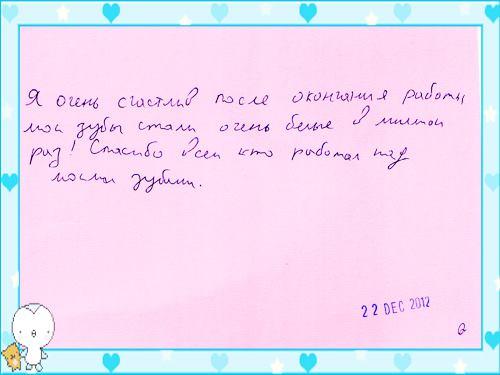 Я очень счастлив после окончания работы
мои зубы стали очень белые в милион
раз! Спасибо всем кто работал над
моими зубами.
22 DEC 2012